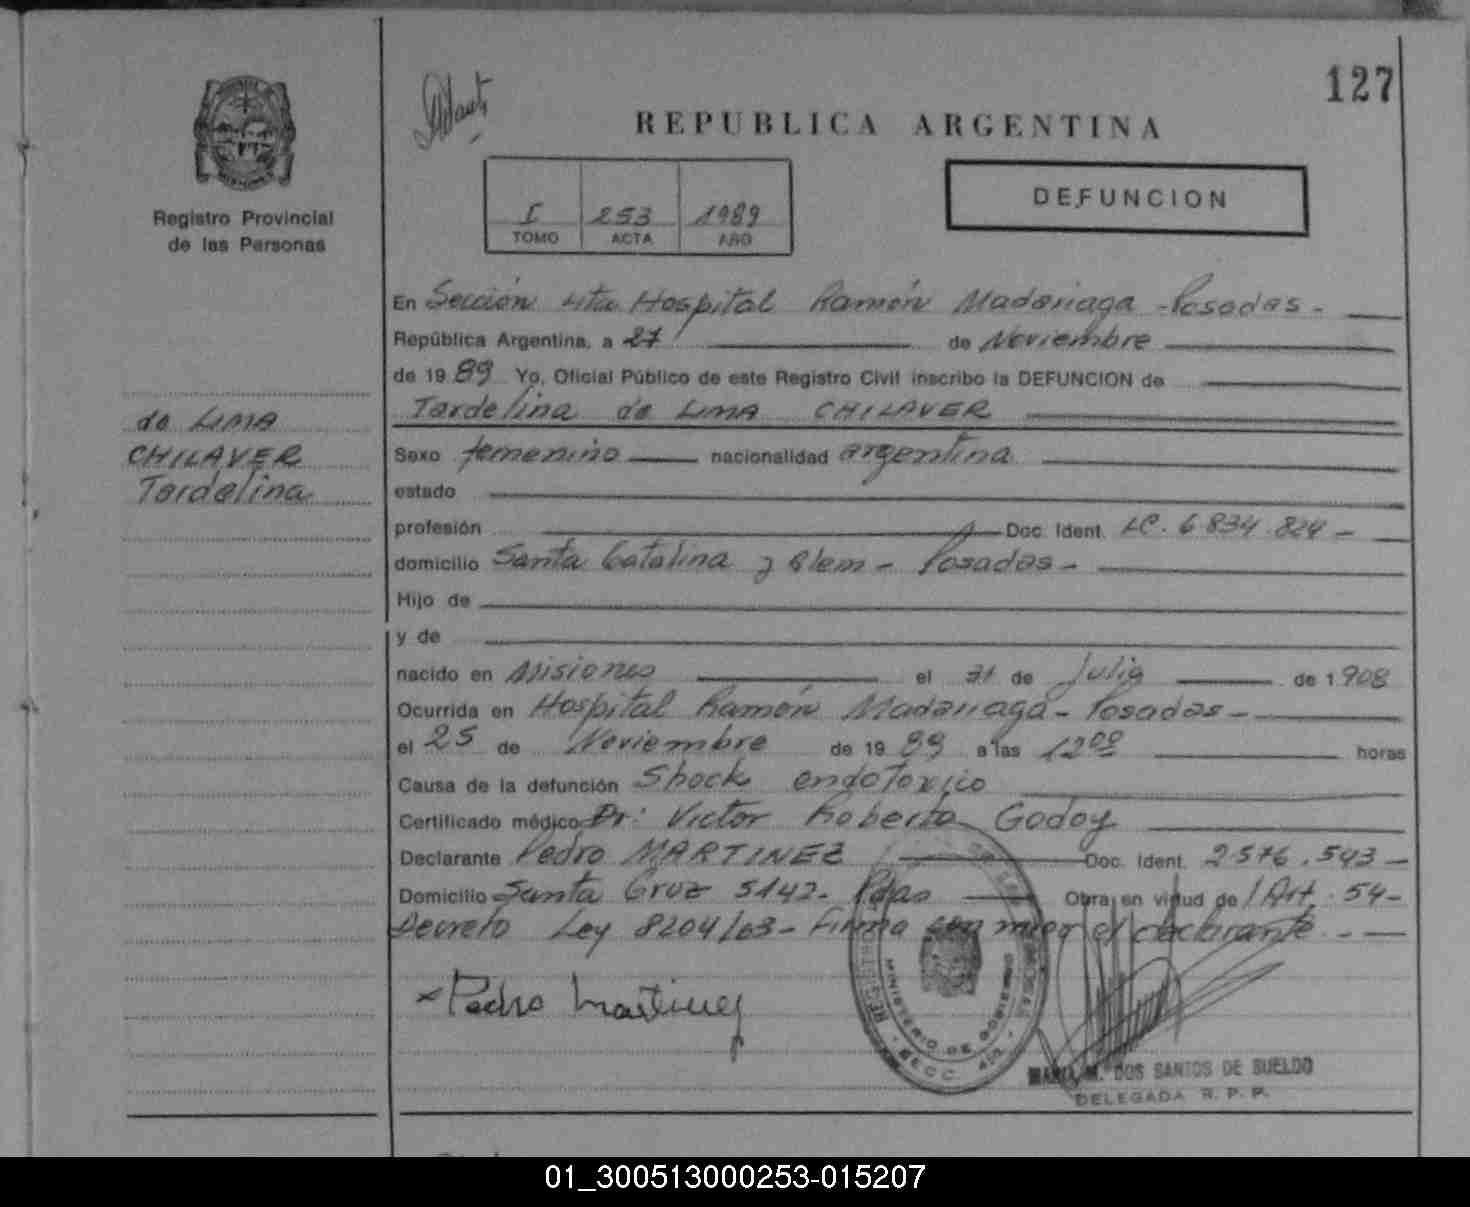 127
REPUBLICA ARGENTINA
Registro Provincial
de las Personas
I 253 1989
TOMO ACTA AÑO
DEFUNCION
de LIMA
CHILAVER
Tardelina
En Sección 4ta Hospital Ramón Madariaga - Posadas -
República Argentina, a 27 de Noviembre
de 1989 Yo, Oficial Público de este Registro Civil inscribo la DEFUNCION de
Tardelina de LIMA CHILAVER
Sexo femenino nacionalidad argentina
estado
profesión Doc. Ident. LC. 6.834.824 -
domicilio Santa Catalina y Alem - Posadas -
Hijo de
y de
nacido en Misiones el 31 de Julio de 1.908
Ocurrida en Hospital Ramón Madariaga - Posadas -
el 25 de Noviembre de 1989 a las 12.00 horas
Causa de la defunción Shock endotoxico
Certificado médico Dr: Victor Roberto Godoy
Declarante Pedro MARTINEZ Doc. Ident. 2.576.543 -
Domicilio Santa Cruz 5142 - Pdas Obra en virtud de l Art. 54 -
Decreto Ley 8204/63 - Firma conmigo el declarante. -
x Pedro Martinez
MINISTERIO DE GOBIERNO
MARIA M. DOS SANTOS DE SUELDO
DELEGADA R. P. P.
01_300513000253-015207